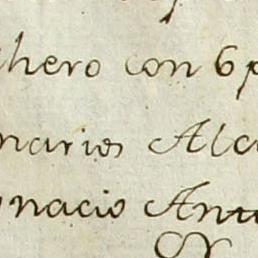 hero con 6
naries Alca
gnacio Ant